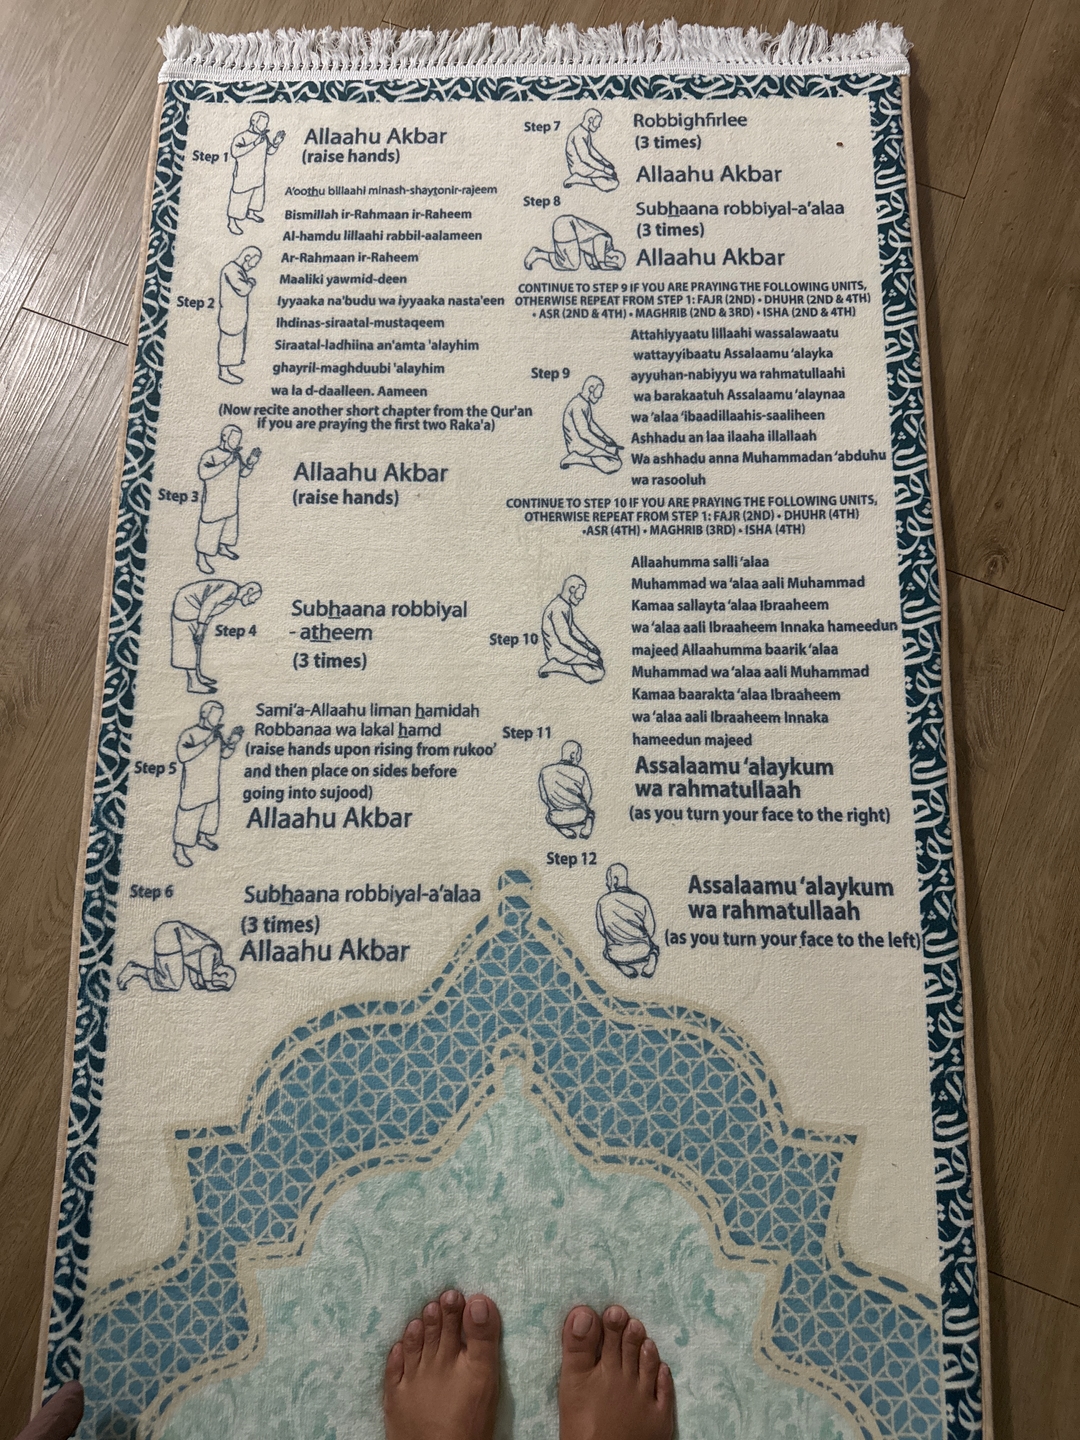 Step 1
Allaahu Akbar
(raise hands)
Step 2
A'oothu billaahi minash-shaytonir-rajeem
Bismillah ir-Rahmaan ir-Raheem
Al-hamdu lillaahi rabbil-aalameen
Ar-Rahmaan ir-Raheem
Maaliki yawmid-deen
Iyyaaka na'budu wa iyyaaka nasta'een
Ihdinas-siraatal-mustaqeem
Siraatal-ladhiina an'amta 'alayhim
ghayril-maghduubi 'alayhim
wa la d-daalleen. Aameen
(Now recite another short chapter from the Qur'an
if you are praying the first two Raka'a)
Step 3
Allaahu Akbar
(raise hands)
Step 4
Subhaana robbiyal
- atheem
(3 times)
Step 5
Sami'a-Allaahu liman hamidah
Robbanaa wa lakal hamd
(raise hands upon rising from rukoo'
and then place on sides before
going into sujood)
Allaahu Akbar
Step 6
Subhaana robbiyal-a'alaa
(3 times)
Allaahu Akbar
Step 7
Robbighfirlee
(3 times)
Allaahu Akbar
Step 8
Subhaana robbiyal-a'alaa
(3 times)
Allaahu Akbar
CONTINUE TO STEP 9 IF YOU ARE PRAYING THE FOLLOWING UNITS,
OTHERWISE REPEAT FROM STEP 1: FAJR (2ND) • DHUHR (2ND & 4TH)
• ASR (2ND & 4TH) • MAGHRIB (2ND & 3RD) • ISHA (2ND & 4TH)
Step 9
Attahiyyaatu lillaahi wassalawaatu
wattayyibaatu Assalaamu 'alayka
ayyuhan-nabiyyu wa rahmatullaahi
wa barakaatuh Assalaamu 'alaynaa
wa 'alaa 'ibaadillaahis-saaliheen
Ashhadu an laa ilaaha illallaah
Wa ashhadu anna Muhammadan 'abduhu
wa rasooluh
CONTINUE TO STEP 10 IF YOU ARE PRAYING THE FOLLOWING UNITS,
OTHERWISE REPEAT FROM STEP 1: FAJR (2ND) • DHUHR (4TH)
•ASR (4TH) • MAGHRIB (3RD) • ISHA (4TH)
Step 10
Allaahumma salli 'alaa
Muhammad wa 'alaa aali Muhammad
Kamaa sallayta 'alaa Ibraaheem
wa 'alaa aali Ibraaheem Innaka hameedun
majeed Allaahumma baarik 'alaa
Muhammad wa 'alaa aali Muhammad
Kamaa baarakta 'alaa Ibraaheem
wa 'alaa aali Ibraaheem Innaka
hameedun majeed
Step 11
Assalaamu 'alaykum
wa rahmatullaah
(as you turn your face to the right)
Step 12
Assalaamu 'alaykum
wa rahmatullaah
(as you turn your face to the left)